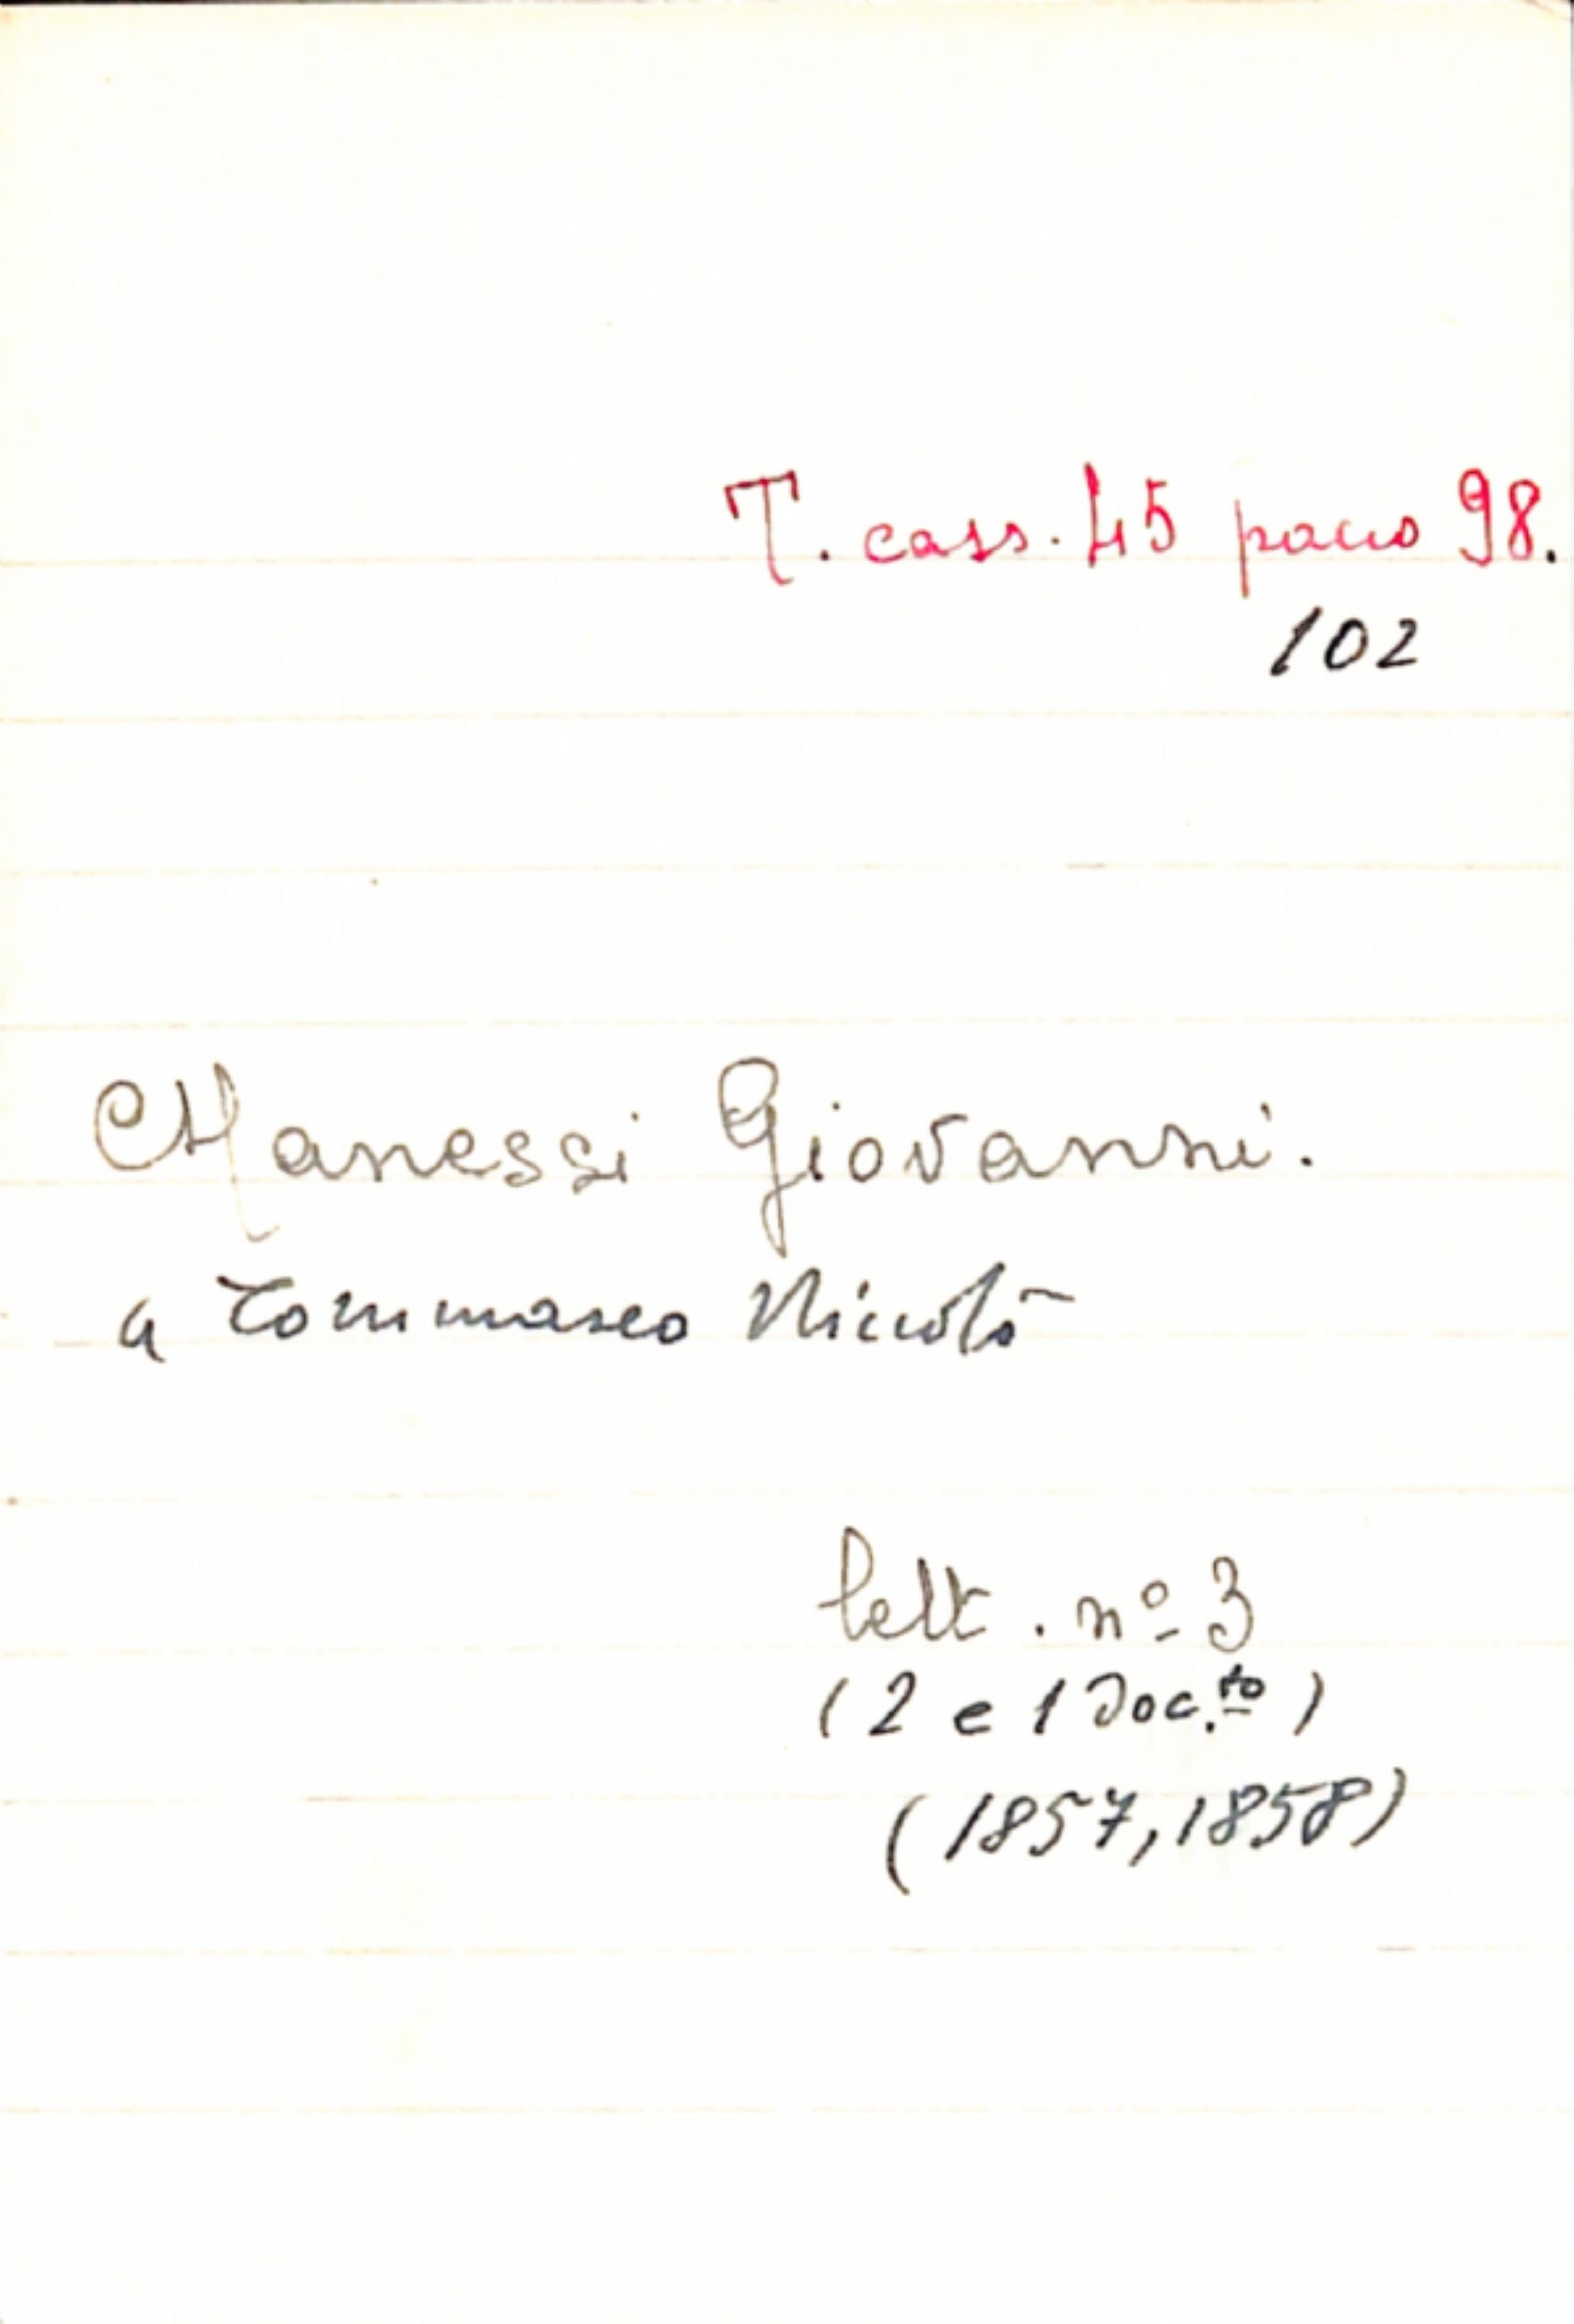 T. cass. 45 pacco 98.
102
Manessi Giovanni.
a Tommaseo Niccolò
lett. nº 3
(2 e 1 Doc.to)
(1857, 1858)